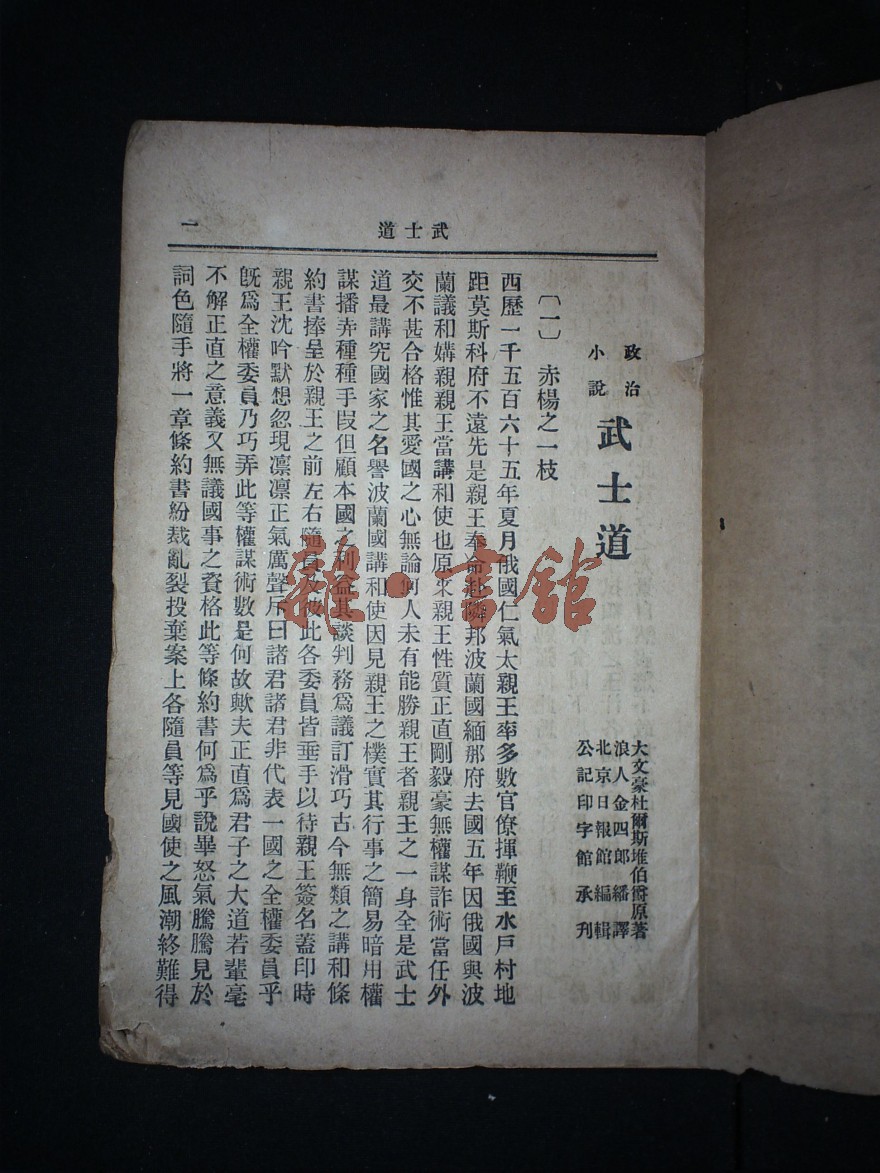 武士道
一
政治
小說
武士道
大文豪杜爾斯堆伯爵原著
浪人金四郎繙譯
北京日報館編輯
公記印字館承刋
〔一〕 赤楊之一枝
西歷一千五百六十五年夏月俄國仁氣太親王率多數官僚揮鞭至水戶村地
距莫斯科府不遠先是親王奉命赴隣邦波蘭國緬那府去國五年因俄國與波
蘭議和媾親親王當講和使也原來親王性質正直剛毅豪無權謀詐術當任外
交不甚合格惟其愛國之心無論何人未有能勝親王者親王之一身全是武士
道最講究國家之名譽波蘭國講和使因見親王之樸實其行事之簡易暗用權
謀播弄種種手段但顧本國之利益其談判務爲議訂滑巧古今無類之講和條
約書捧呈於親王之前左右隨員及彼此各委員皆垂手以待親王簽名蓋印時
親王沈吟默想忽現凛凛正氣厲聲斥曰諸君諸君非代表一國之全權委員乎
旣爲全權委員乃巧弄此等權謀術數是何故歟夫正直爲君子之大道若輩毫
不解正直之意義又無議國事之資格此等條約書何爲乎說畢怒氣騰騰見於
詞色隨手將一章條約書紛裁亂裂投棄案上各隨員等見國使之風潮終難得
雜·書館